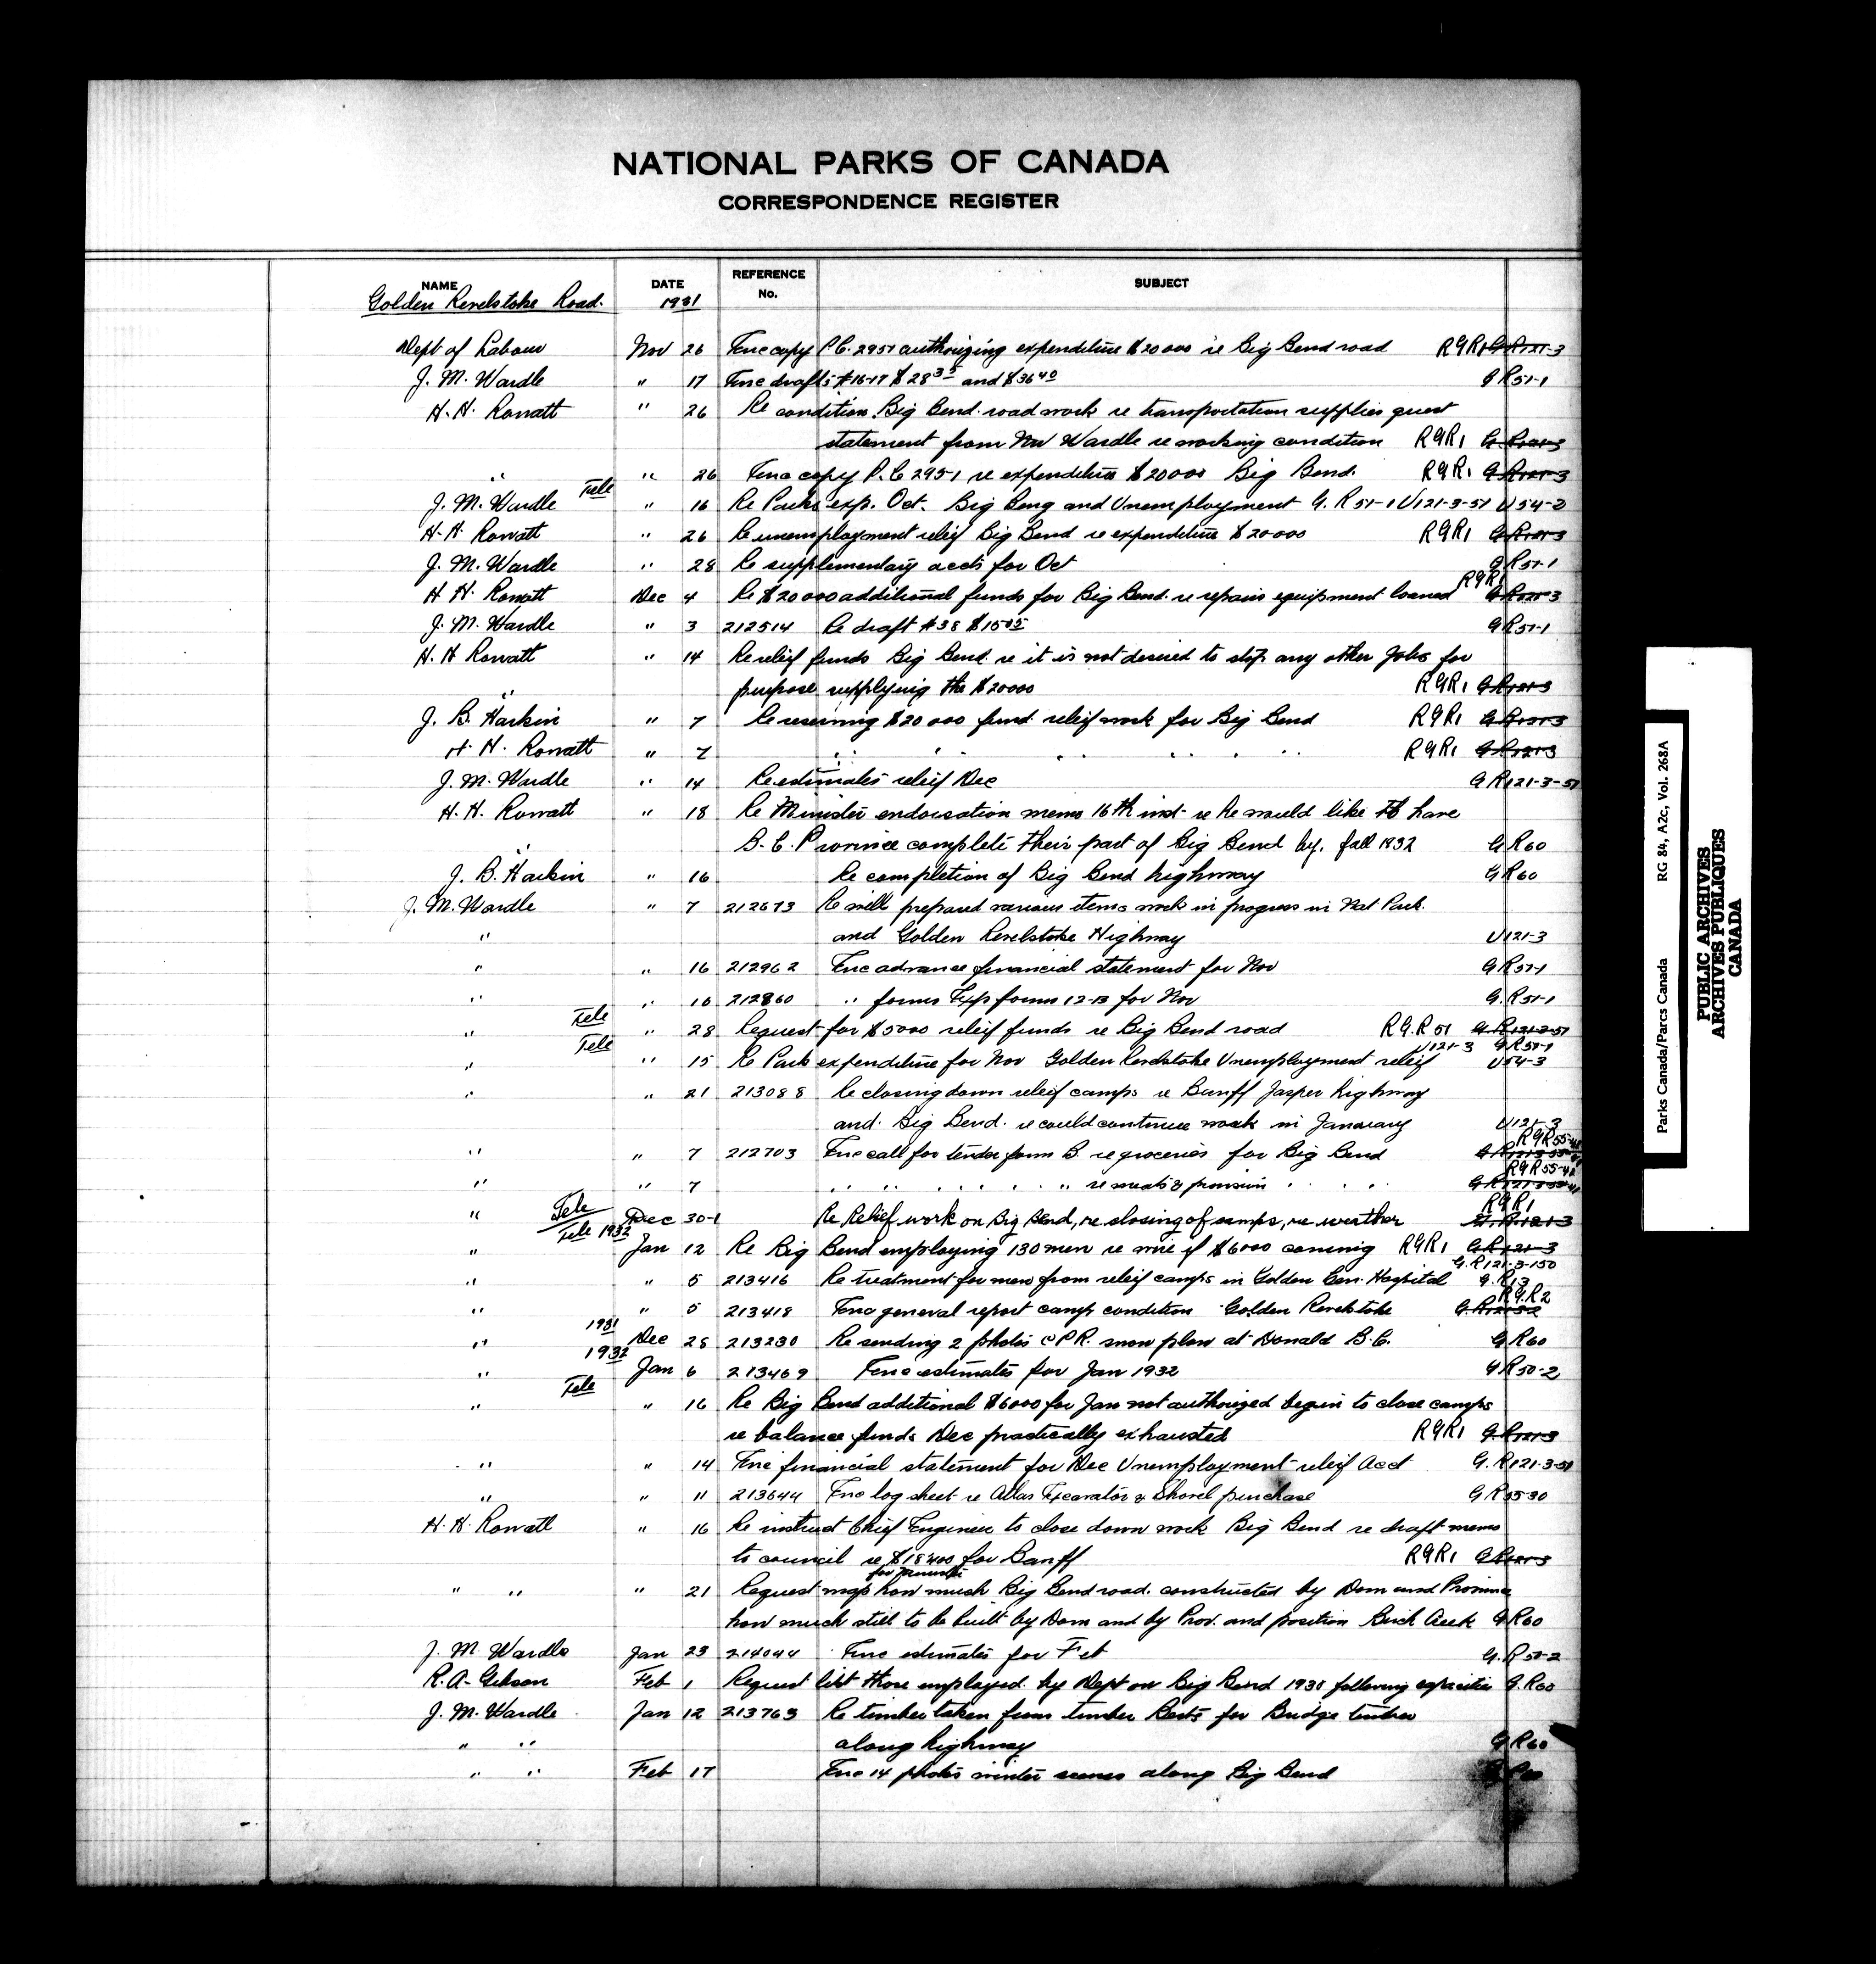 NATIONAL PARKS OF CANADA
CORRESPONDENCE REGISTER
NAME DATE REFERENCE No. SUBJECT
Golden Revelstoke Road. 1931
Dept of Labour Nov 26 Enc copy P.C. 2951 authorizing expenditure $20000 re Big Bend road RGR1 G.R121-3
J. M. Wardle " 17 Enc drafts #16-17 $28 35 and $36 40 GR51-1
H. H. Rowatt " 26 Re condition Big Bend road work re transportation supplies quest
statement from Mr Wardle re working condition RGR1 G.R121-3
" " 26 Enc copy P.C 2951 re expenditure $20000 Big Bend. RGR1 G.R121-3
J. M. Wardle Tele " 16 Re Parks exp. Oct. Big Beng and Unemployment G.R 51-1 U121-3-51 U54-2
H. H Rowatt " 26 Re unemployment relief Big Bend re expenditure $20000 RGR1 G.R121-3
J. M. Wardle " 28 Re supplementary accts for Oct GR51-1
H H. Rowatt Dec 4 Re $20000 additional funds for Big Bend. re repairs equipment loaned RGR1 G.R121-3
J. M. Wardle " 3 212514 Re draft #38 GR51-1
H. H Rowatt " 14 Re relief funds Big Bend re it is not desired to stop any other Jobs for
purpose supplying the $20000 RGR1 G.R121-3
J. B. Harkin " 7 Re reserving $20000 fund relief work for Big Bend RGR1 G.R121-3
H. H. Rowatt " 7 " " " " " " RGR1 G.R121-3
J. M. Wardle " 14 Re estimates relief Dec GR121-3-51
H. H. Rowatt " 18 Re Minister endorsation memo 16th inst re he would like to have
B. C. Province complete their part of Big Bend by. fall 1932 GR60
J. B. Harkin " 16 Re completion of Big Bend highway GR60
J. M. Wardle " 7 212673 Re will prepared various items work in progress in Nat Park.
" and Golden Revelstoke Highway U121-3
" " 16 212962 Enc advance financial statement for Nov GR51-1
" " 16 212860 " forms Exp forms 12-13 for Nov G.R51-1
" Tele " 28 Request for $5000 relief funds re Big Bend road RG.R 51 G.R121-3-51
" Tele " 15 Re Park expenditure for Nov Golden Revelstoke Unemployment relief U121-3 GR51-1 U54-3
" " 21 213088 Re closing down relief camps re Banff Jasper highway
and. Big Bend. re could continue work in Janurary U121-3
" " 7 212703 Enc call for tender form B. re groceries for Big Bend RGR55-
" " 7 " " " " " " " re meats & provision " " " RGR55-
" Tele Dec 30-1 Re Relief work on Big Bend, re closing of camps, re weather RGR1 G.R.121-3
" Tele 1932 Jan 12 Re Big Bend employing 130 men re wire if $6000 coming RGR1 G.R121-3
" " 5 213416 Re treatment for men from relief camps in Golden Gen. Hospital G.R121-3-150 G.R13
" " 5 213418 Enc general report camp condition Golden Revelstoke RG.R2
" 1931 Dec 28 213230 Re sending 2 photos CPR. snow plow at Donald B.C. GR60
" 1932 Jan 6 213469 Enc estimates for Jan 1932 GR50-2
" Tele " 16 Re Big Bend additional $6000 for Jan not authorized begin to close camps
re balance funds Dec practically exhausted RGR1 G.R121-3
" " 14 Enc financial statement for Dec Unemployment relief Acct G.R121-3-51
" " 11 213644 Enc log sheet re Atlas Excavator & Shovel purchase GR55-30
H. H. Rowatt " 16 Re instruct Chief Engineer to close down work Big Bend re draft memo
to council re $18400 for Banff RGR1 G.R121-3
" " " 21 Request map for minister how much Big Bend road. constructed by Dom and Province
how much still to be built by Dom and by Prov. and position Birch Creek GR60
J. M. Wardle Jan 23 214044 Enc estimates for Feb G.R50-2
R. A. Gibson Feb 1 Request list those employed by Dept on Big Bend 1931 following capacities G.R60
J. M. Wardle Jan 12 213763 Re timber taken from timber Berts for Bridge timber
" " along highway GR60
" " Feb 17 Enc 14 photos winter scenes along Big Bend
Parks Canada/Parcs Canada RG 84, A2c, Vol. 268A
PUBLIC ARCHIVES
ARCHIVES PUBLIQUES
CANADA